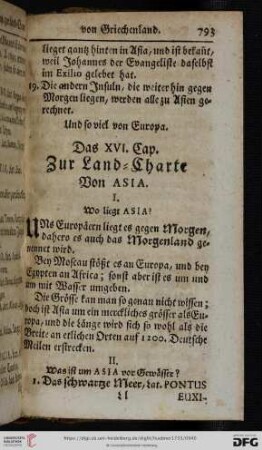 von Griechenland. 793
lieget gantz hinten in Asia, und ist bekant,
weil Johannes der Evangeliste daselbst
im Exilio gelebet hat.
19. Die andern Insuln, die weiter hin gegen
Morgen liegen, werden alle zu Asien ge-
rechnet.
Und so viel von Europa.
Das XVI. Cap.
Zur Land-Charte
Von ASIA.
I.
Wo liegt ASIA?
UNs Europäern liegt es gegen Morgen,
dahero es auch das Morgenland ge-
nennet wird.
Bey Moscau stößt es an Europa, und bey
Egypten an Africa; sonst aber ist es um und
um mit Wasser umgeben.
Die Grösse kan man so genau nicht wissen;
doch ist Asia um ein merckliches grösser als Eu-
ropa, und die Länge wird sich so wohl als die
Breite an etlichen Orten auf 1200. Deutsche
Meilen erstrecken.
II.
Was ist um ASIA vor Gewässer?
1. Das schwartze Meer, Lat. PONTUS
Ll EUXI-
UNIVERSITÄTS-BIBLIOTHEK HEIDELBERG
© Universitätsbibliothek Heidelberg
DFG